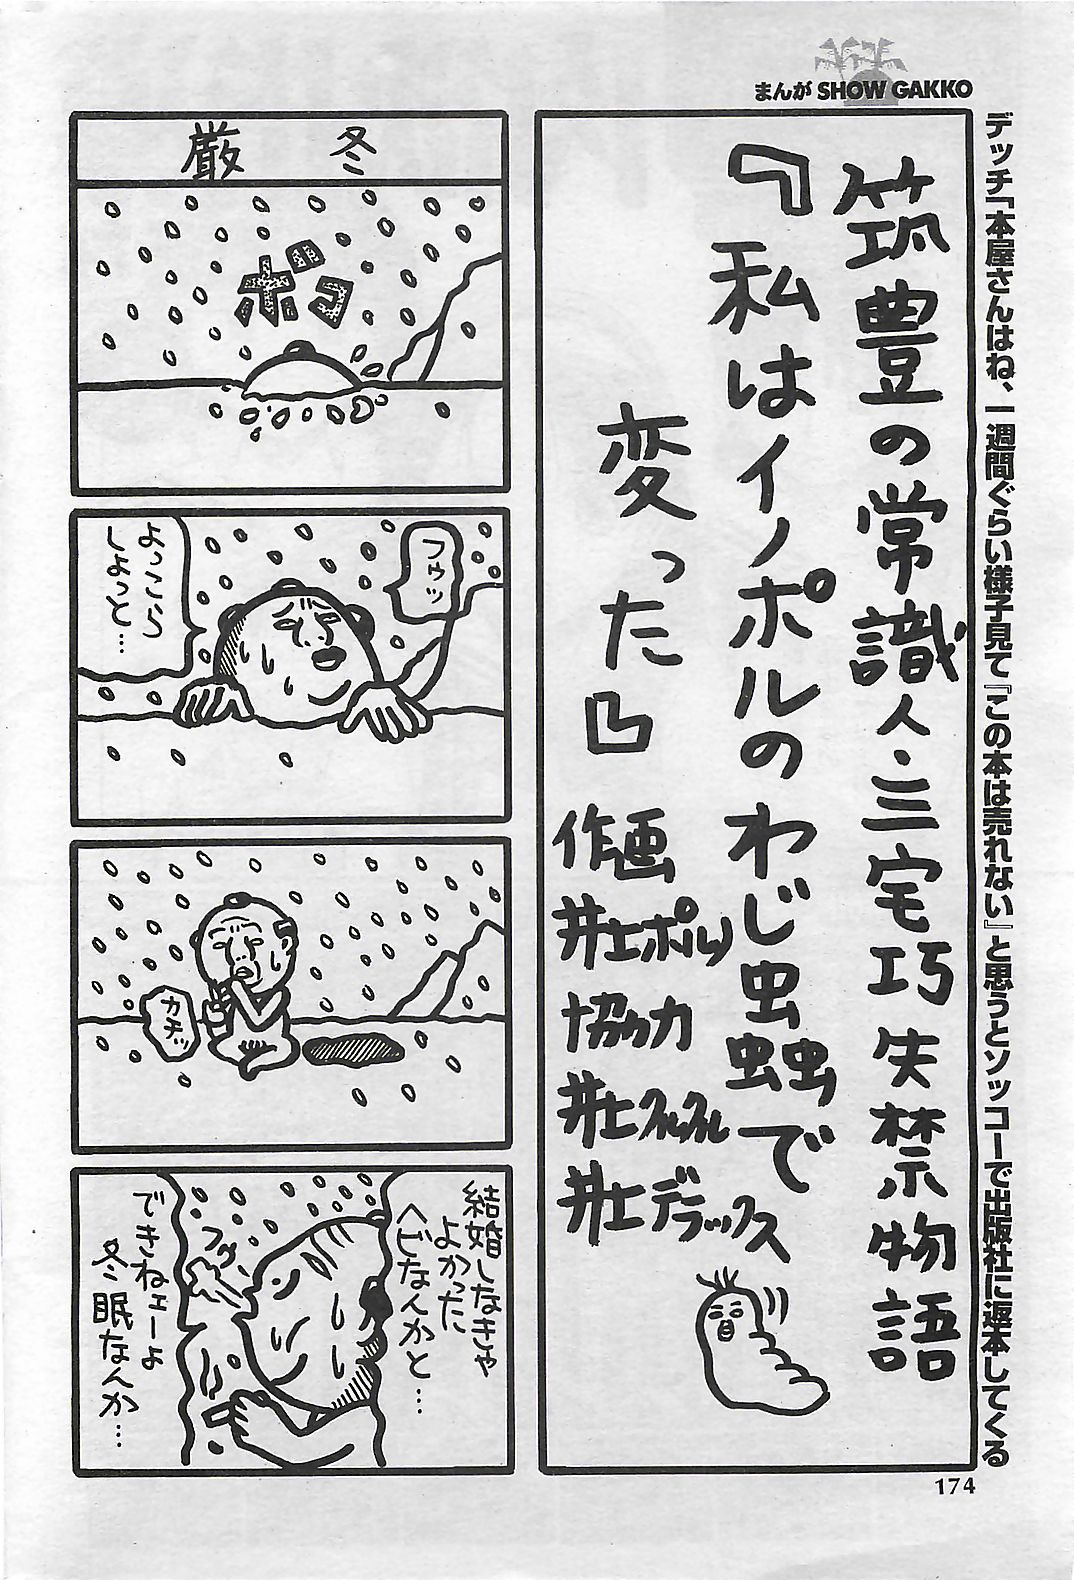 まんが SHOW GAKKO
デッチ「本屋さんはね、一週間ぐらい様子見て『この本は売れない』と思うとソッコーで出版社に返本してくる
筑豊の常識人・三宅巧失禁物語
『私はイノポルのわじ虫蟲で
変った』
作画
井上ポルノ
協力
井上フルフル
井上デラックス
厳冬
ボコ
フゥッ
よっこら
しょっと…
カチッ
結婚しなきゃ
よかった
ヘビなんかと…
フゥ、
できねェーよ
冬眠なんか…
174